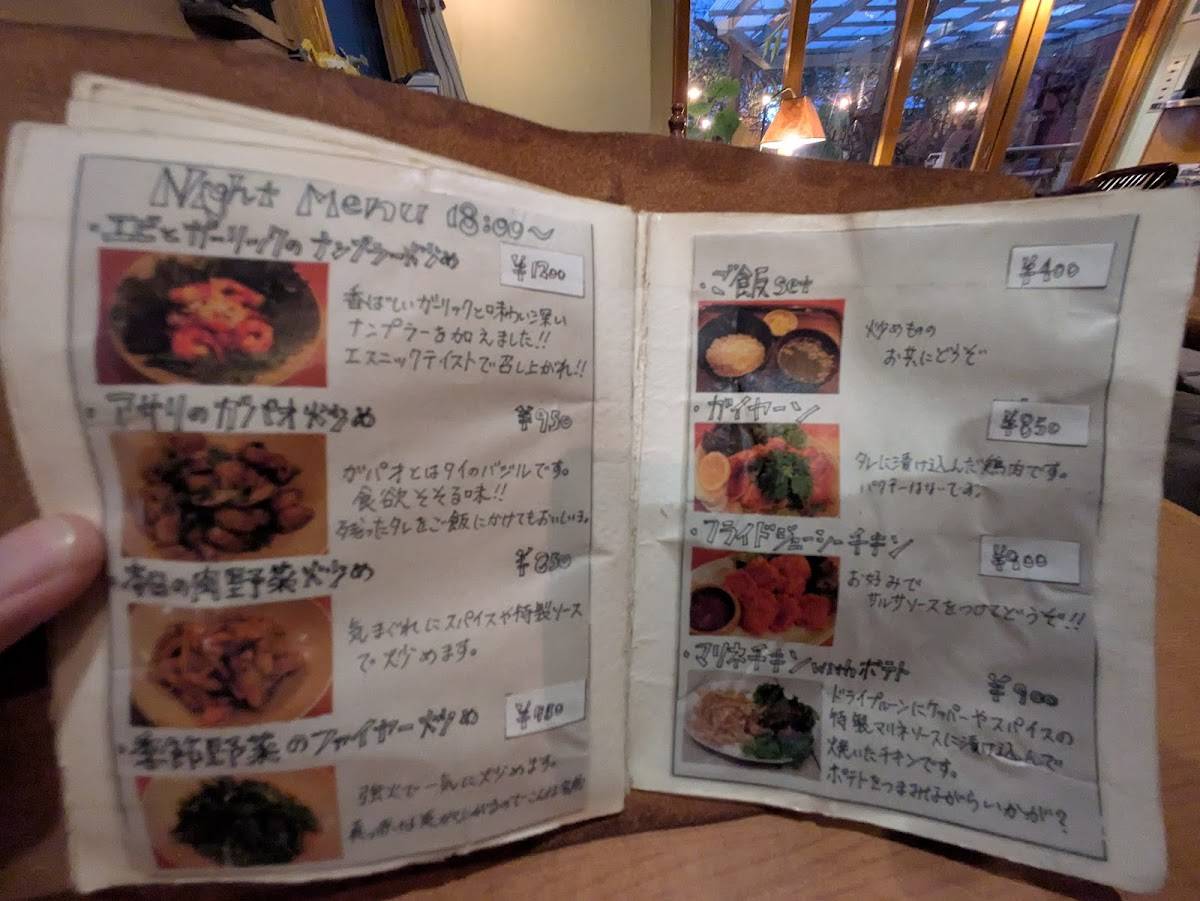 Night Menu 18:00~
・エビとガーリックのナンプラー炒め
¥1200
香ばしいガーリックと味わい深い
ナンプラーを加えました!!
エスニックテイストで召し上がれ!!
・アサリのガパオ炒め
¥950
ガパオとはタイのバジルです。
食欲そそる味!!
残ったタレをご飯にかけてもおいしいョ。
・本日の肉野菜炒め
¥850
気まぐれにスパイスや特製ソース
で炒めます。
・季節野菜のファイヤー炒め
強火で一気に炒めます。
・ご飯set
¥400
炒めものの
お共にどうぞ
・ガイヤーン
¥850
タレに漬け込んだ鶏肉です。
パクチーはなーです。
・フライドジューシーチキン
¥900
お好みで
サルサソースをつけてどうぞ!!
・マリネチキンwithポテト
¥900
ドライプルーンにケッパーやスパイスの
特製マリネソースに漬け込んで
焼いたチキンです。
ポテトをつまみながらいかが?